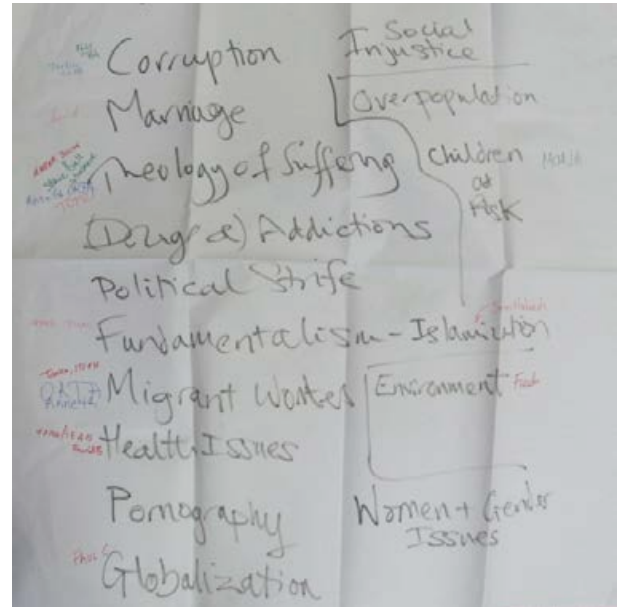 Corruption
Marriage
Theology of Suffering
(Drug &) Addictions
Political Strife
Fundamentalism - Islamization
Migrant Worker
Health Issues
Pornography
Globalization
Social
Injustice
Overpopulation
Children
at
Risk
Environment
Women + Gender
Issues